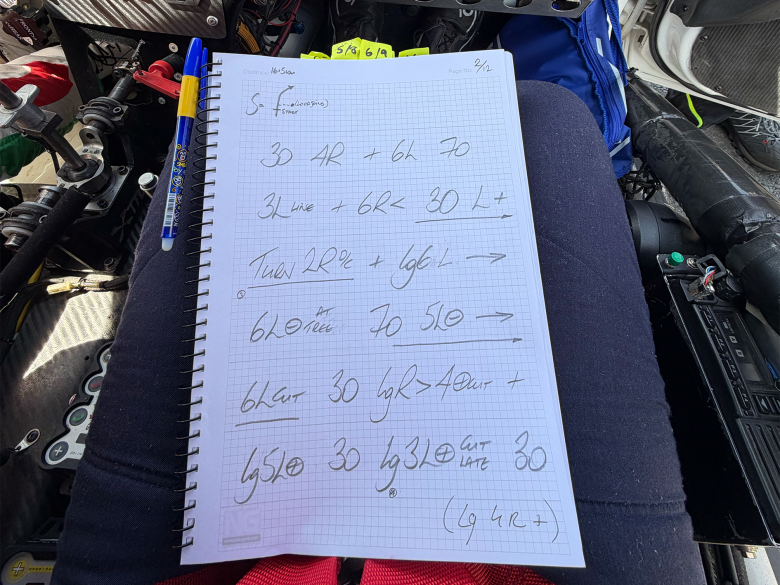 5/8 6/9
2/12
30 4R + 6L 70
3L LINE + 6R< 30 L+
TURN 2R % + lg6L →
6L⊖ AT TREE 70 5L⊖ →
6L CUT 30 lgR>4⊕CUT +
lg5L⊕ 30 lg3L⊕ CUT LATE 30
(lg 4R +)